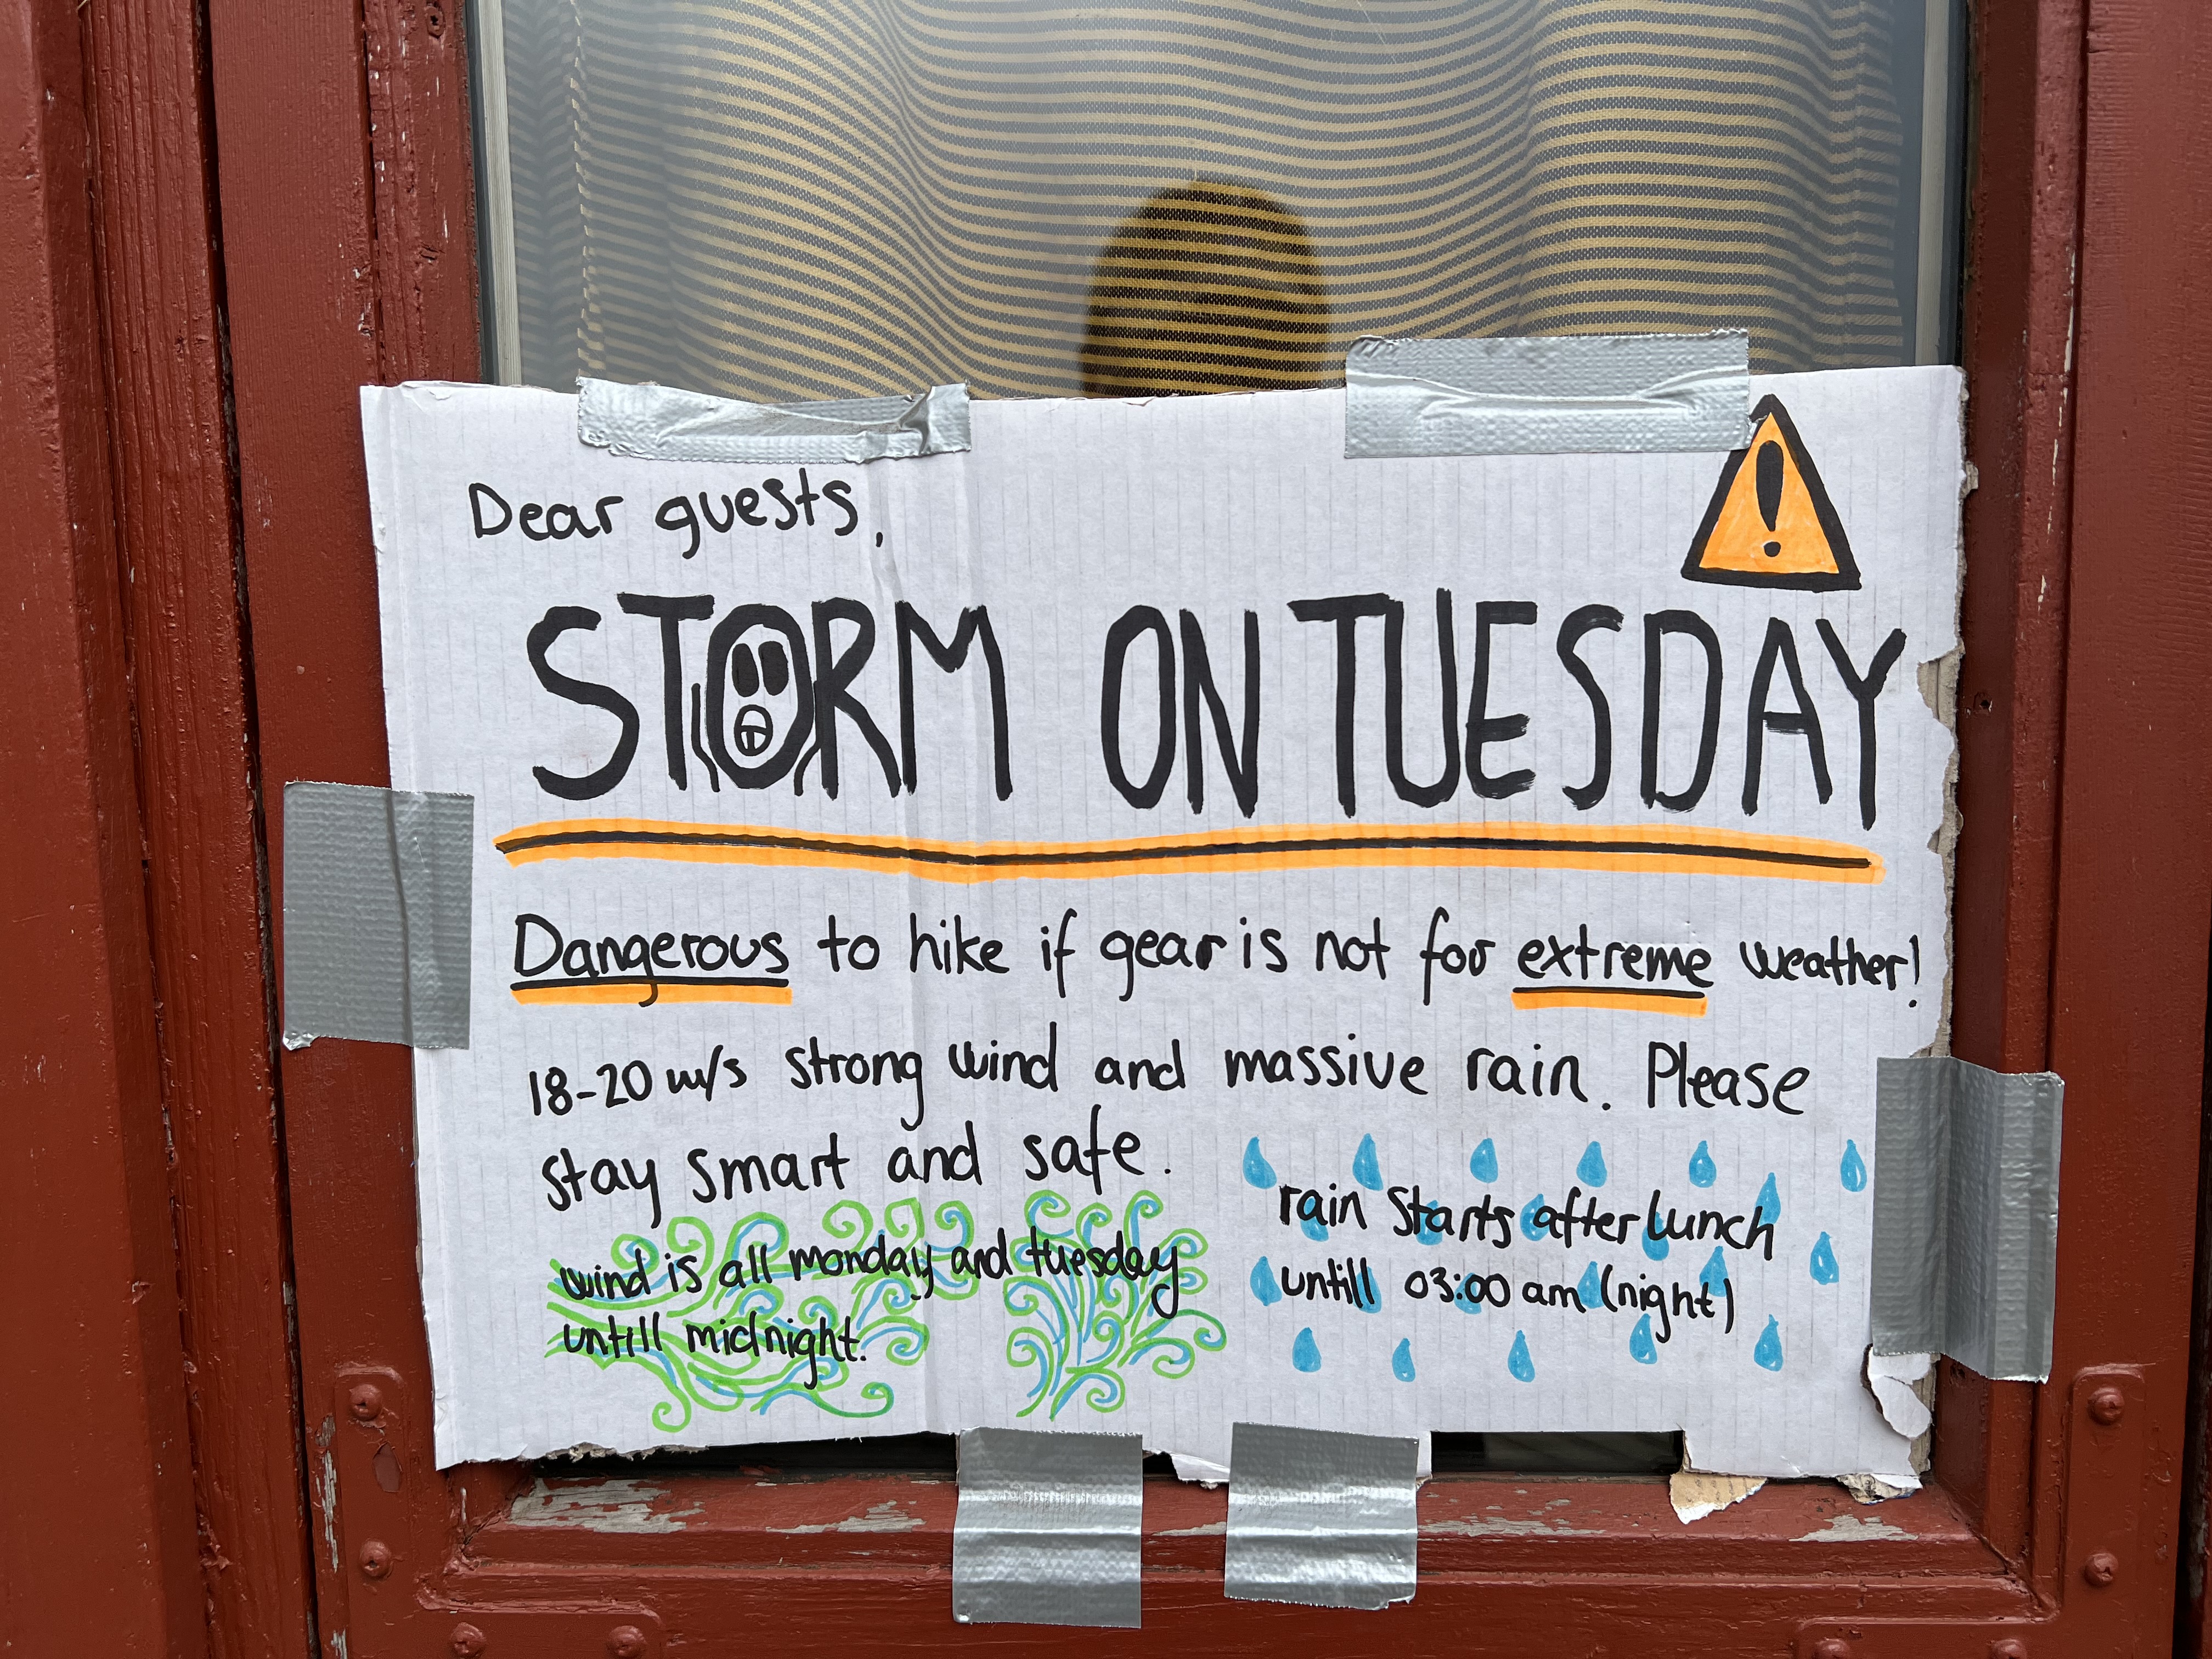 Dear guests,
STORM ON TUESDAY
Dangerous to hike if gear is not for extreme weather!
18-20 m/s strong wind and massive rain. Please
stay smart and safe.
wind is all monday and tuesday
untill midnight.
rain starts after lunch
untill 03:00 am (night)